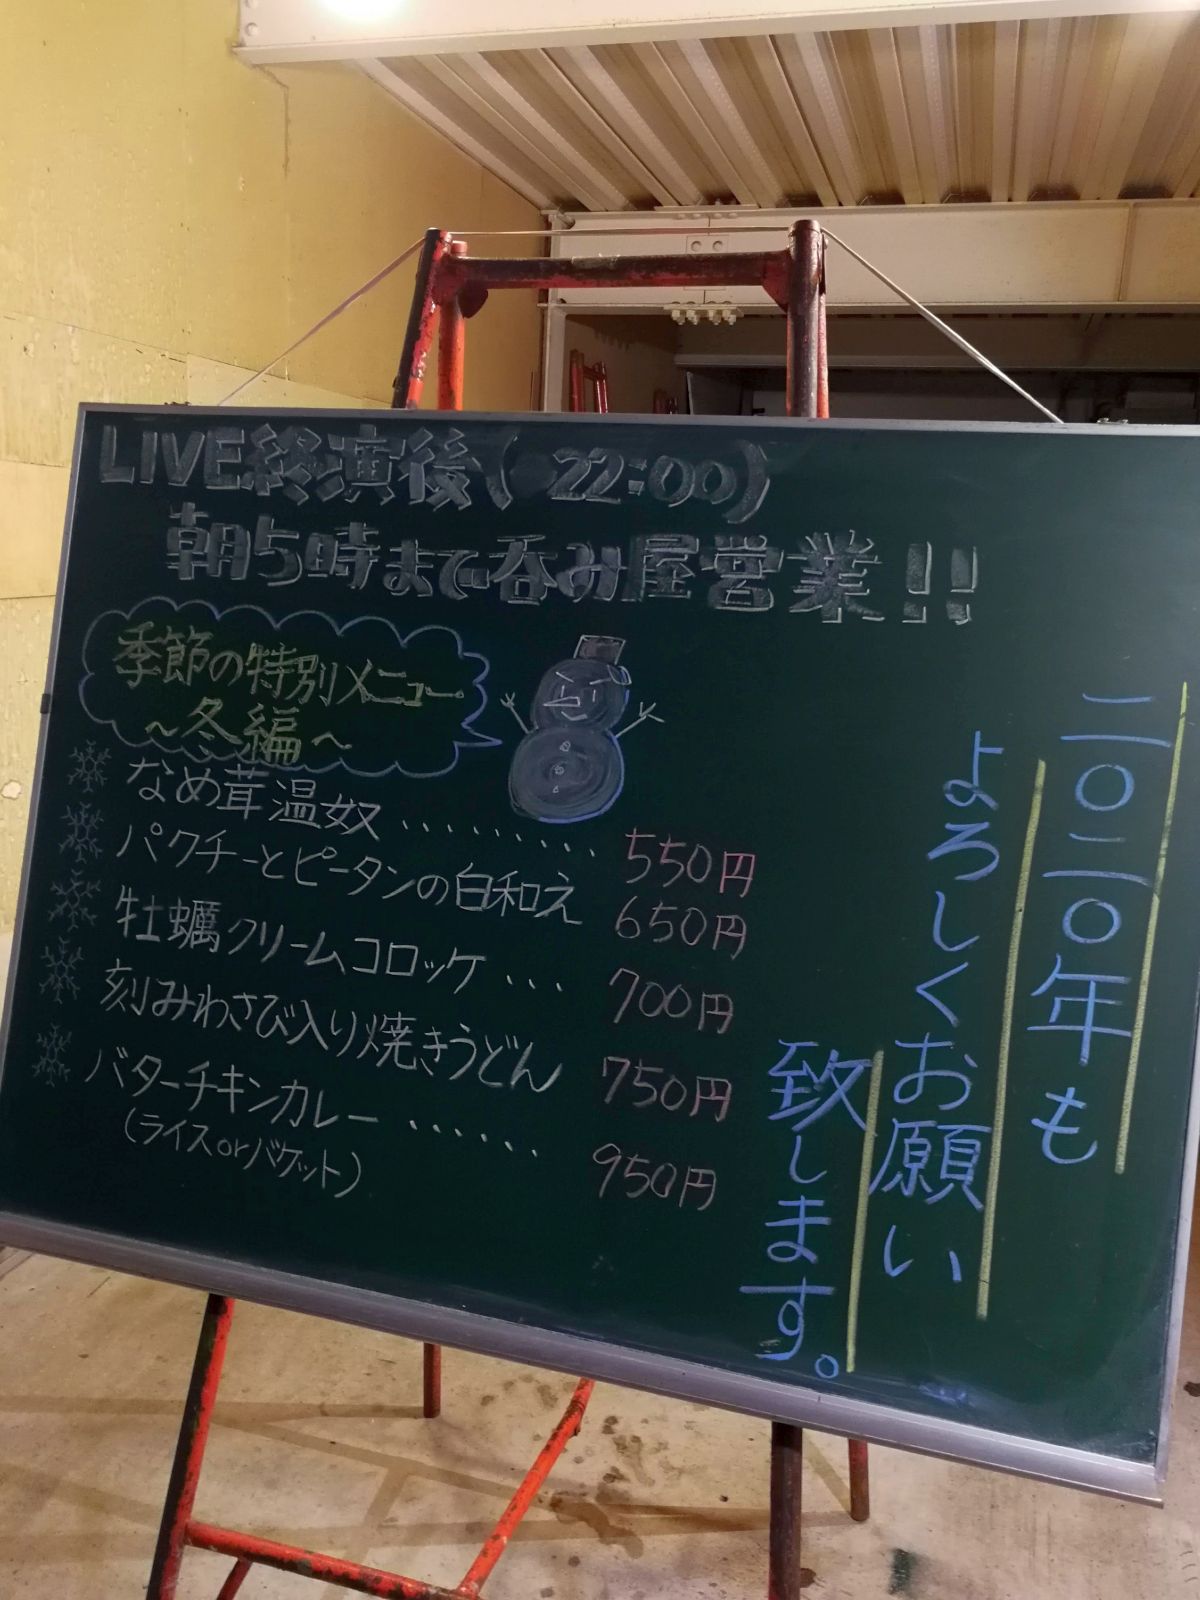 LIVE終演後(22:00)
朝5時まで呑み屋営業!!
季節の特別メニュー
～冬編～
なめ茸温奴......... 550円
パクチーとピータンの白和え 650円
牡蠣クリームコロッケ... 700円
刻みわさび入り焼きうどん 750円
バターチキンカレー...... 950円
(ライスorバケット)
二〇二〇年も
よろしくお願い
致します。